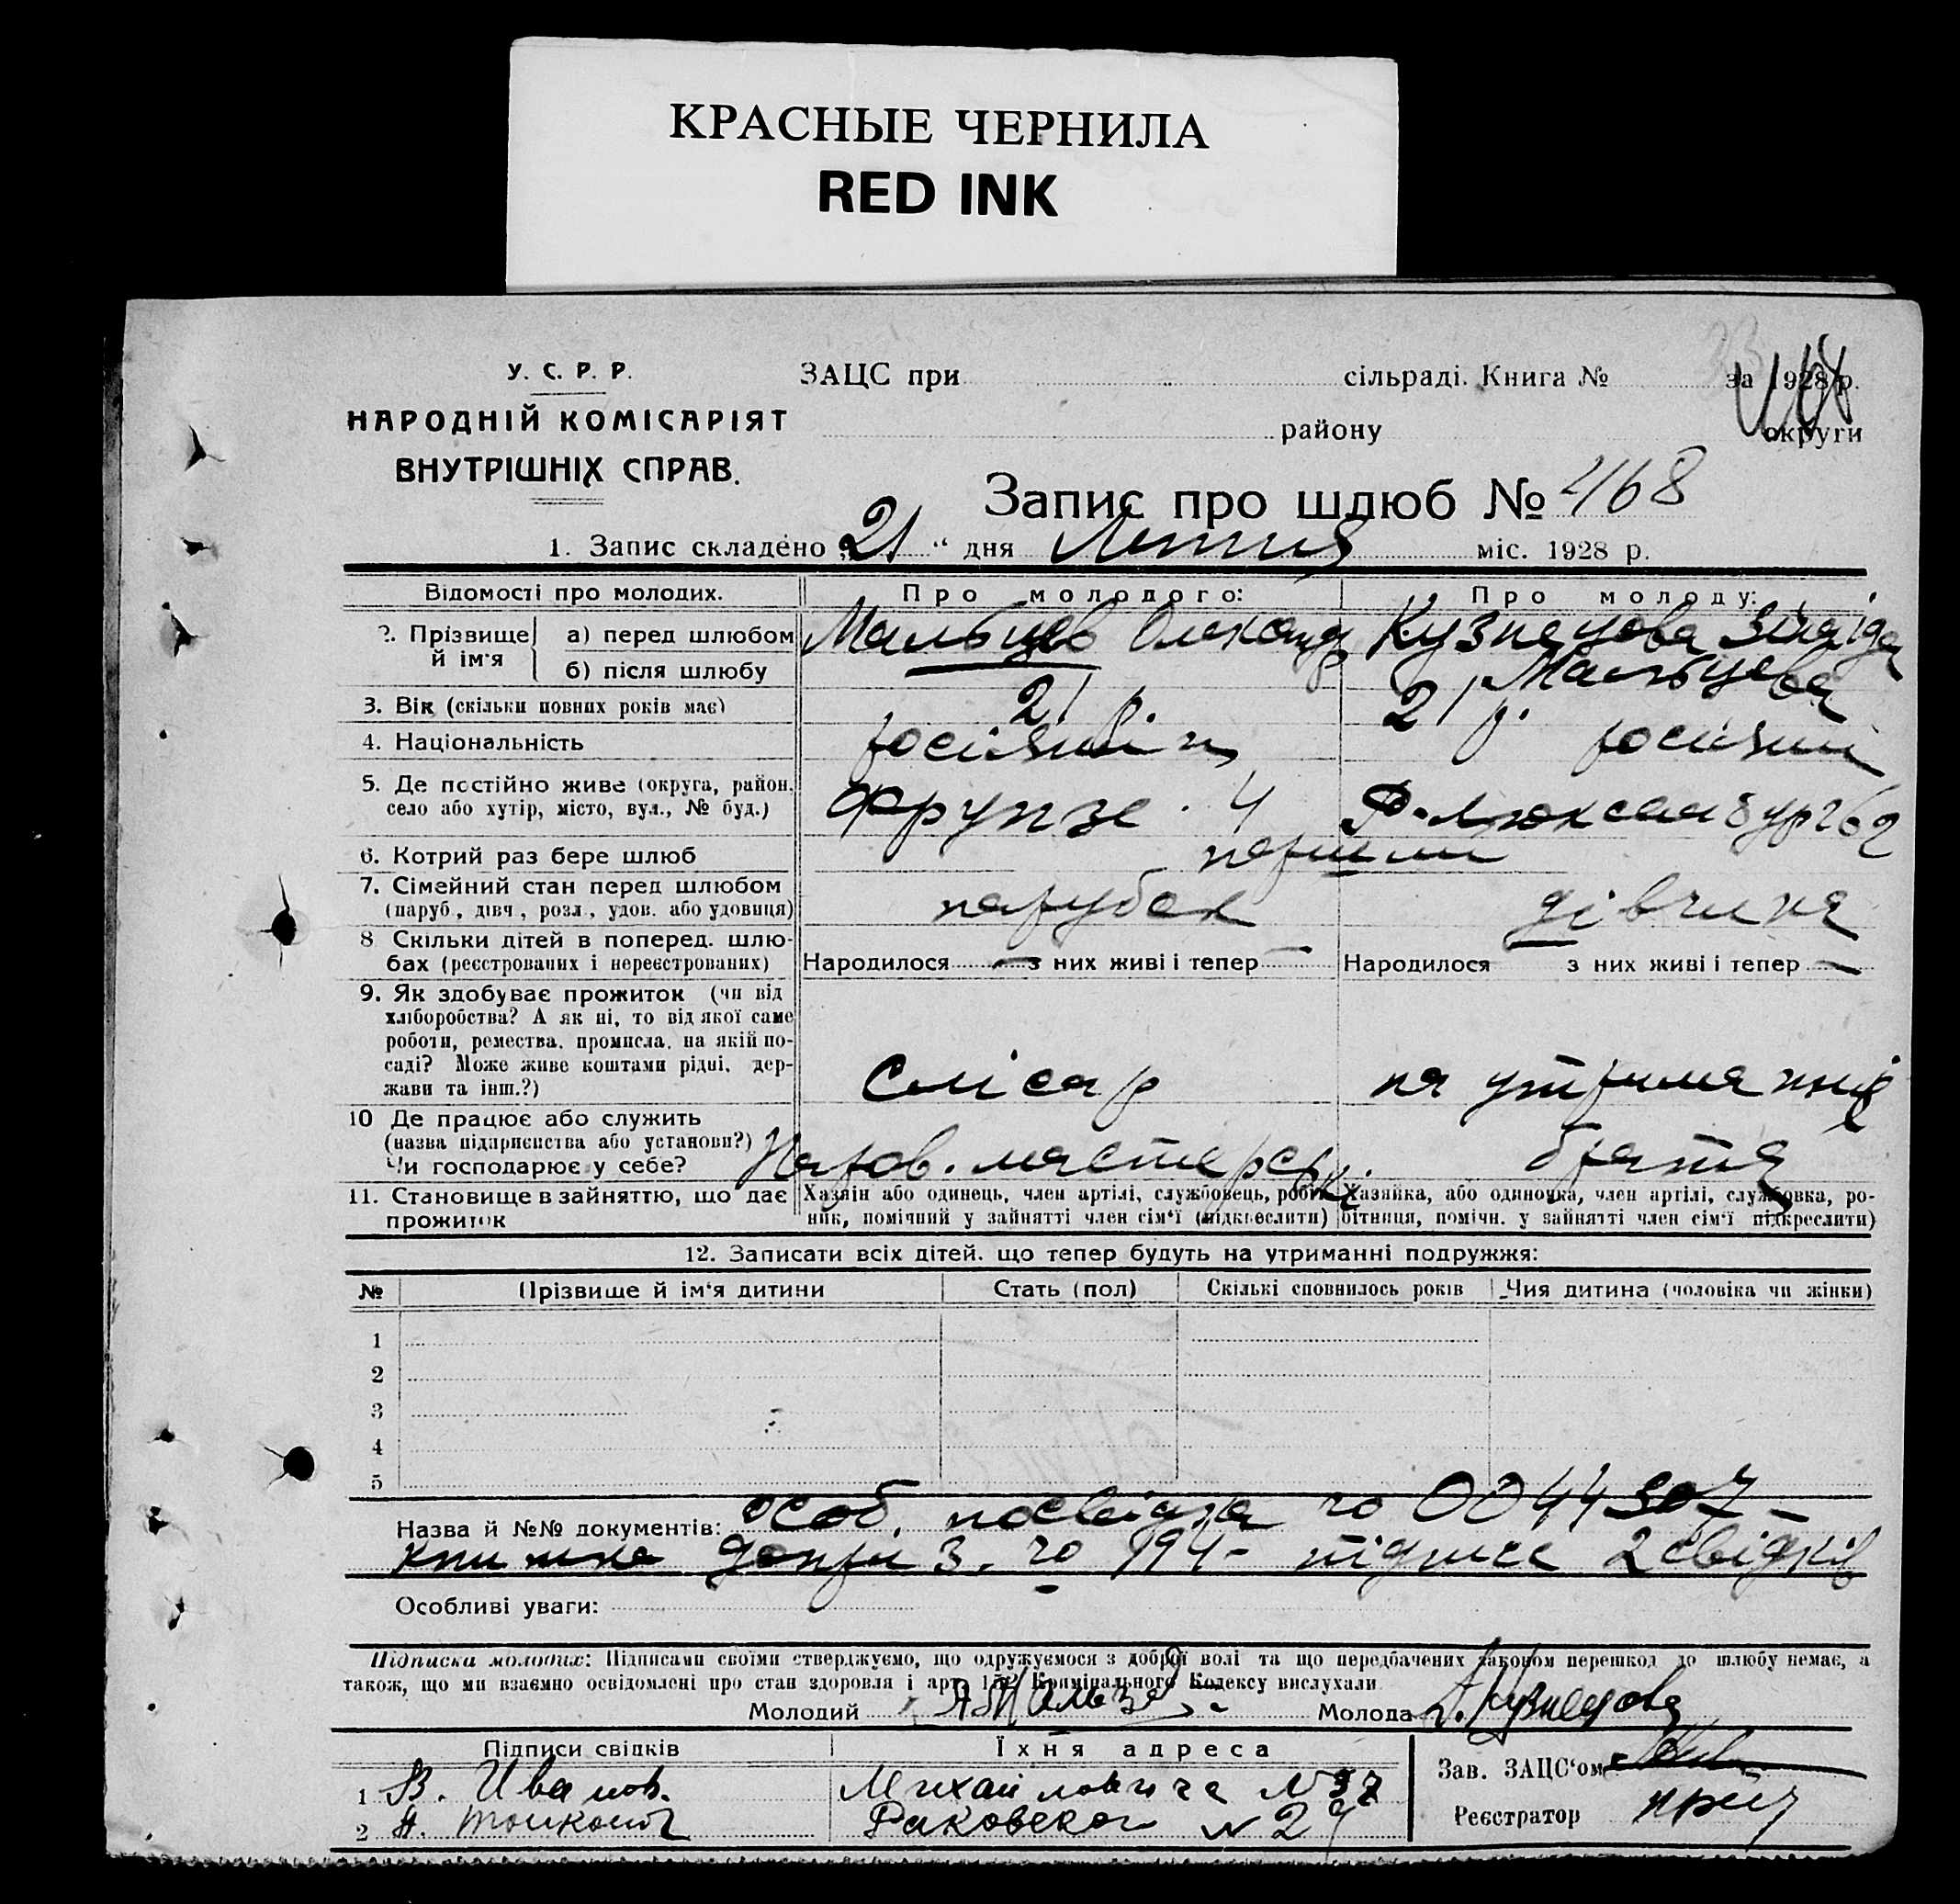 КРАСНЫЕ ЧЕРНИЛА
RED INK
У. С. Р. Р.
НАРОДНІЙ КОМІСАРІЯТ
ВНУТРІШНІХ СПРАВ.
ЗАЦС при сільраді. Книга № за 1928 р.
району округи
Запис про шлюб № 468
1. Запис складено „21“ дня Лютия міс. 1928 р.
Відомості про молодих. Про молодого: Про молоду:
2. Прізвище й ім'я
а) перед шлюбом Мальцев Олександ Кузнецова Зінаїда
б) після шлюбу Мальцева
3. Вік (скільки повних років має) 21 р. 21 р.
4. Національність
5. Де постійно живе (округа, район, село або хутір, місто, вул., № буд.) Фрунзе. 4 Р-люксамбург 62
6. Котрий раз бере шлюб перший
7. Сімейний стан перед шлюбом (паруб., дівч., розл., удов. або удовиця) парубок дівчина
8 Скільки дітей в поперед. шлюбах (реєстрованих і нереєстрованих) Народилося — з них живі і тепер — Народилося з них живі і тепер —
9. Як здобуває прожиток (чи від хліборобства? А як ні, то від якої саме роботи, ремества, промисла, на якій посаді? Може живе коштами рідні, держави та інш.?) Слісар на утриманні
10 Де працює або служить (назва підприємства або установи?) Чи господарює у себе? Паров. мастерські. брата
11. Становище в зайняттю, що дає прожиток
Хазяїн або одинець, член артілі, службовець, робітник, помічний у зайнятті член сім'ї (підкреслити)
Хазяйка, або одиночка, член артілі, службовка, робітниця, помічн. у зайнятті член сім'ї підкреслити)
12. Записати всіх дітей. що тепер будуть на утриманні подружжя:
№ Прізвище й ім'я дитини Стать (пол) Скількі сповнилось років Чия дитина (чоловіка чи жінки)
1
2
3
4
5
Назва й №№ документів: особ. посвідка 
книжка 194- підпис 2 свідків
Особливі уваги:
Підписка молодих: Підписами своїми стверджуємо, що одружуємося з доброї волі та що передбачених законом перешкод до шлюбу немає, а
також, що ми взаємно освідомлені про стан здоровля і арт. 152 Кримінального Кодексу вислухали
Молодий Молода Кузнецова
Підписи свідків Їхня адреса Зав. ЗАЦС'ом
1 В. Иванов. Михайловича №37
2 Раковског №29 Реєстратор